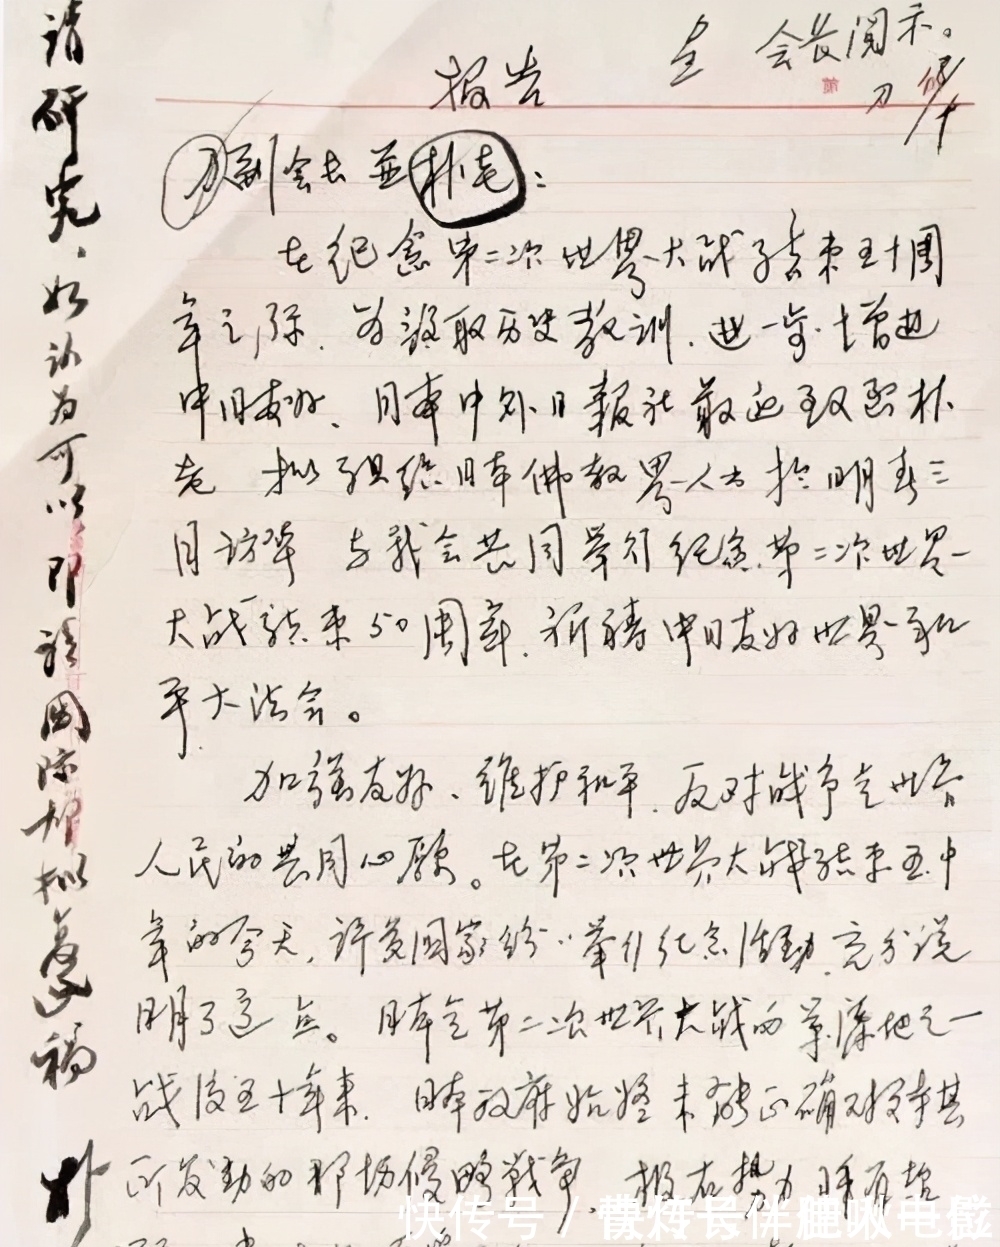 报告
呈 会长阅示。
刀
刀副会长並朴老：
在纪念第二次世界大战结束五十周
年之际，为汲取历史教训，进一步增进
中日友好，日本中外日报社最近致函朴
老，拟组织日本佛教界人士于明春三
月访华，与我会共同举行纪念第二次世界
大战结束50周年，祈祷中日友好世界和
平大法会。
加强友好、维护和平，反对战争是世界
人民的共同心愿。在第二次世界大战结束五十
年的今天，许多国家纷纷举行纪念活动，充分说
明了这点。日本是第二次世界大战的策源地之一
战后五十年来，日本政府始终未能正确对待其
所发动的那场侵略战争，极右势力
请研究，如认为可以即请国际部拟复稿
朴
快传号 /